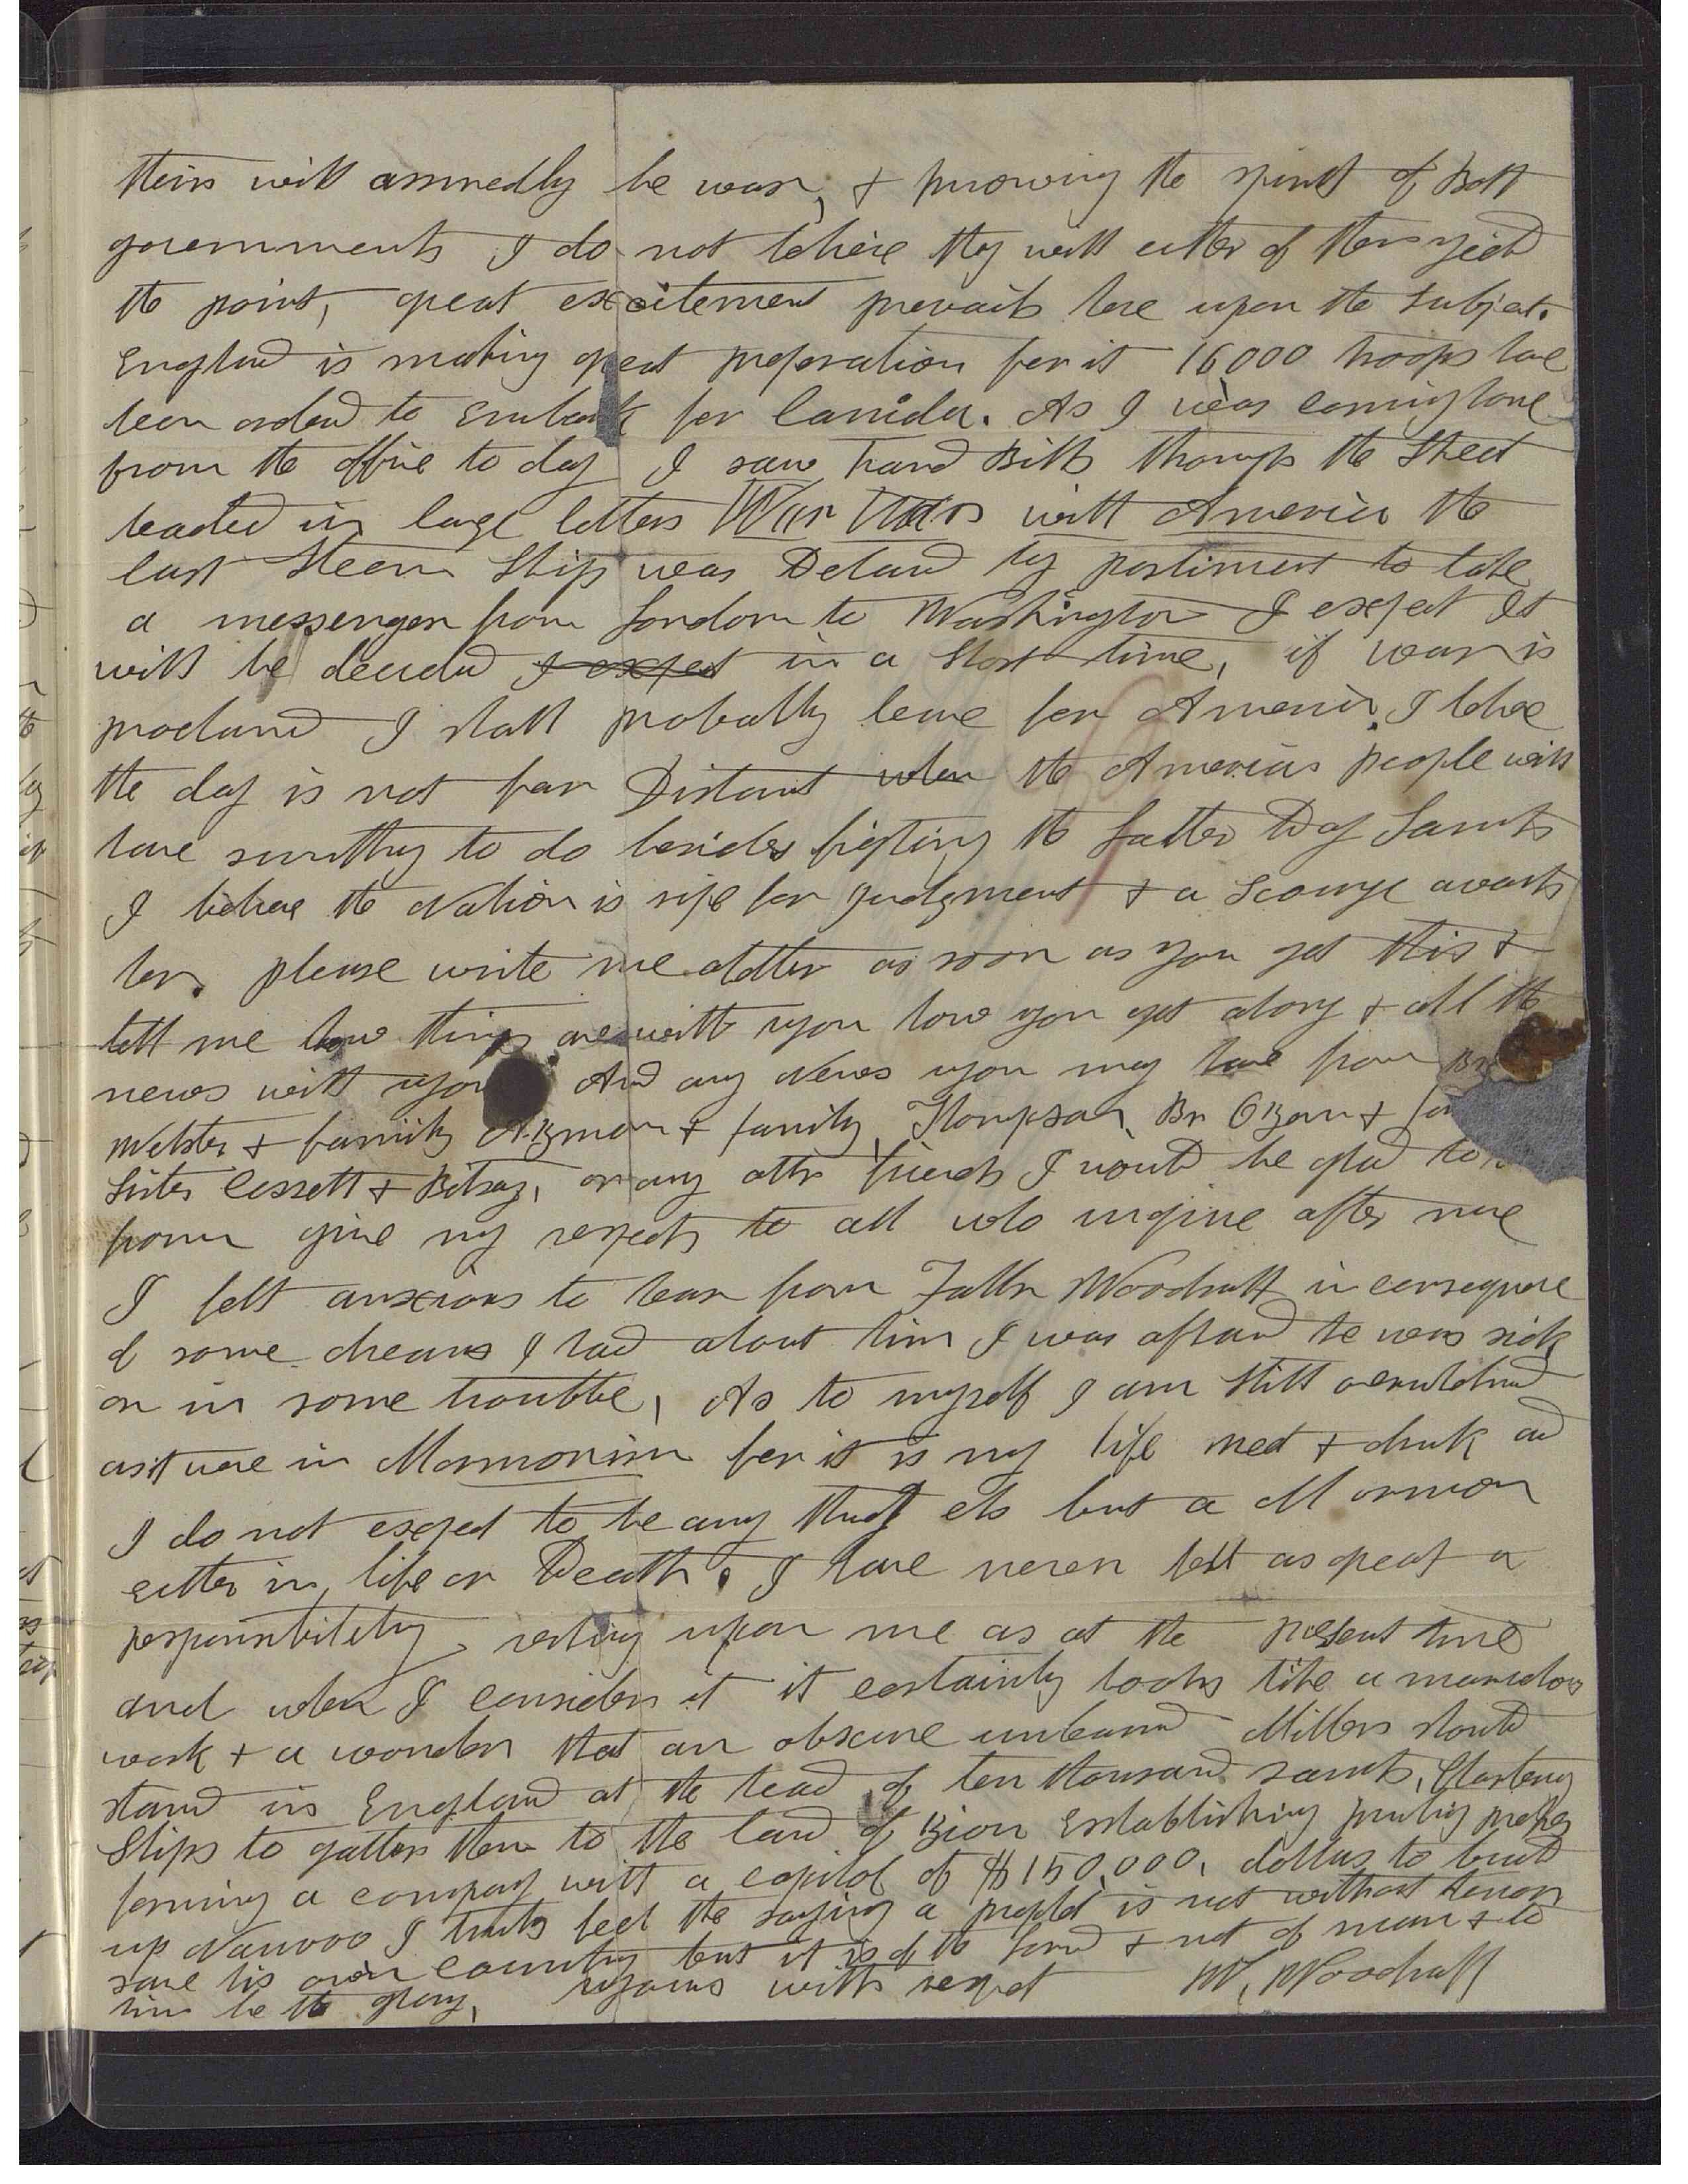 theirs will assuredly be war, & knowing the spirit of Both
governments I do not believe they will either of them yield
the point, great excitement prevails here upon the subject.
England is making great preperation for it 16000 troops have
been orderd to Embark for Canida. As I was coming home
from the office to day I saw hand Bills through the Street
headed in large letters War War with America the
last Steem Ship was Detaind by parliment to take
a messenger from London to Washington I expect It
will be decided I expect in a Short time, if war is
proclaimd I shall probably leave for America. I believe
the day is not far Distant when the American people will
have sumthing to do besides fighting the Latter Day Saints
I believe the Nation is ripe for Judgment & a Scourge awaits
her. please write me a letter as soon as you get this &
tell me how things are with you how you get along & all the
news with you And any News you may have from Br
Webster & family Ozman & family, Thompson, Br Ozan &
Sister Cossett & Betsey, or any other friends I would be glad to
from give my respects to all who inquire after me
I felt anxious to hear from Father Woodruff in consequence
of some dreams I had about him I was affraid he was sick
or in some trouble, As to myself I am Still overwhelmd
as it were in Mormonism for it is my life meet & drink and
I do not expect to be any thing els but a Mormon
either in life or Death. I have never felt as great a
responsibility resting upon me as at the present time
and when I consider it it certainly looks like a marvelous
work & a wonder that an obscure unlearnd Miller should
stand in England at the head of ten thousand saints, Chartering
Ships to gather them to the land of Zion Establishing printing presses
forming a company with a capital of $150,000, dollars to build
up Nauvoo I truly feel the saying a prophet is not without honor
save his own country but it is of the Lord & not of man & to
him be the glory, remains with respect W, Woodruff